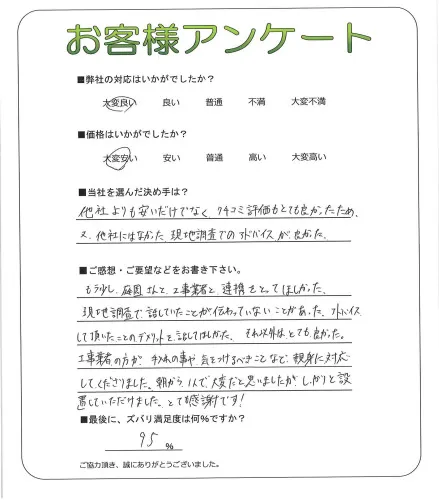 お客様アンケート
■弊社の対応はいかがでしたか?
大変良い 良い 普通 不満 大変不満
■価格はいかがでしたか?
大変安い 安い 普通 高い 大変高い
■当社を選んだ決め手は?
他社よりも安いだけでなく、クチコミ評価もとても良かったため。
又、他社にはなかった、現地調査でのアドバイスが、良かった。
■ご感想・ご要望などをお書き下さい。
もう少し、庭園さんと、工事業者と、連携をとってほしかった。
現地調査で、話していたことが伝わっていないことがあった。アドバイス
して頂いたことのデメリットを、話してほしかった。それ以外はとても良かった。
工事業者の方が、手入れの事や、気をつけるべきことなど、親身に対応
してくださりました。朝から、1人で、大変だと思いましたが、しっかりと設
置していただけました。とても感謝です!
■最後に、ズバリ満足度は何%ですか?
95 %
ご協力頂き、誠にありがとうございました。